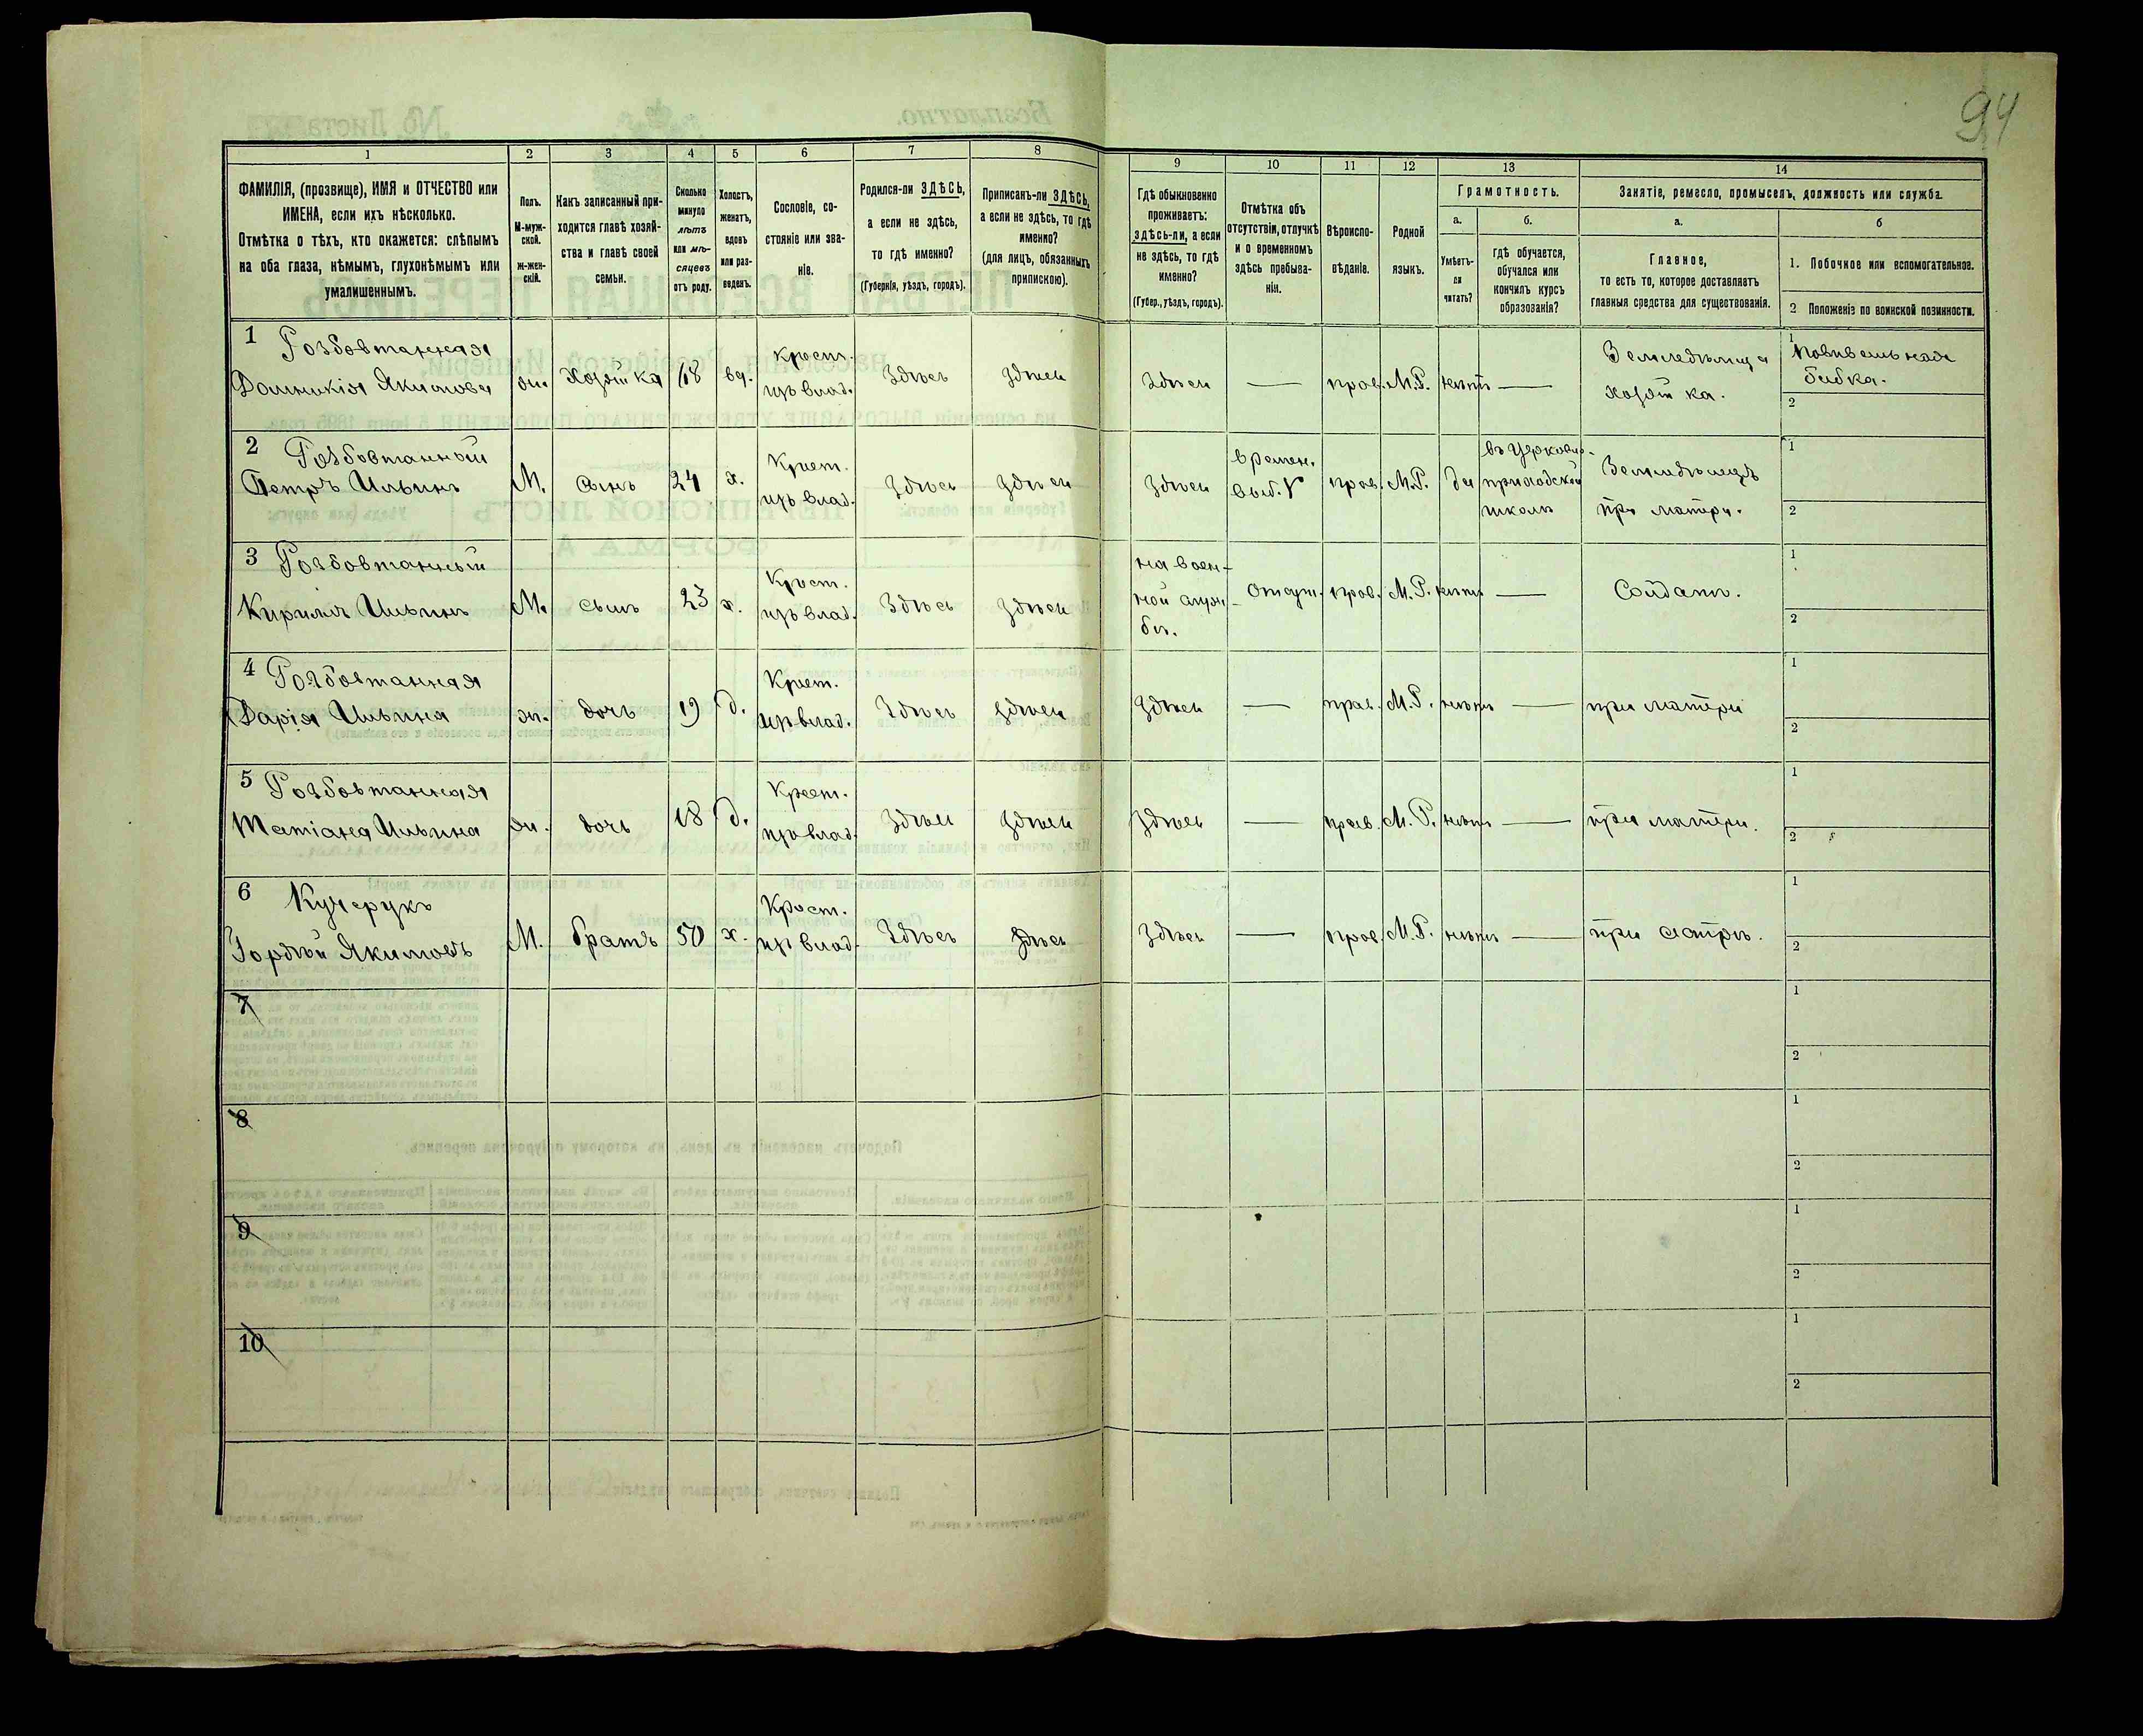 94
1 2 3 4 5 6 7 8 9 10 11 12 13 14
ФАМИЛІЯ, (прозвище), ИМЯ и ОТЧЕСТВО или
ИМЕНА, если ихъ нѣсколько.
Отмѣтка о тѣхъ, кто окажется: слѣпымъ
на оба глаза, нѣмымъ, глухонѣмымъ или
умалишеннымъ.
Полъ.
М-муж-
ской.
Ж-жен-
скій.
Какъ записанный при-
ходится главѣ хозяй-
ства и главѣ своей
семьи.
Сколько
минуло
лѣтъ
или мѣ-
сяцевъ
отъ роду.
Холостъ,
женатъ,
вдовъ
или раз-
веденъ.
Сословіе, со-
стояніе или зва-
ніе.
Родился-ли ЗДѢСЬ,
а если не здѣсь,
то гдѣ именно?
(Губернія, уѣздъ, городъ).
Приписанъ-ли ЗДѢСЬ,
а если не здѣсь, то гдѣ
именно?
(для лицъ, обязанныхъ
припискою).
Гдѣ обыкновенно
проживаетъ:
здѣсь-ли, а если
не здѣсь, то гдѣ
именно?
(Губер., уѣздъ, городъ).
Отмѣтка объ
отсутствіи, отлучкѣ
и о временномъ
здѣсь пребыва-
ніи.
Вѣроиспо-
вѣданіе.
Родной
языкъ.
Грамотность.
а.
Умѣетъ-
ли
читать?
б.
гдѣ обучается,
обучался или
кончилъ курсъ
образованія?
Занятіе, ремесло, промыселъ, должность или служба.
а.
Главное,
то есть то, которое доставляетъ
главныя средства для существованія.
б
1. Побочное или вспомогательное.
2 Положеніе по воинской повинности.
1 Розбовтанная
Домникія Якимова
жи. Хозяйка 68 вд.
Крест.
изъ влад.
Здѣсь здѣсь здѣсь — прав. М.Р. нѣтъ —
Земледѣлица
хозяйка.
1 Повивальная
бабка.
2
2 Розбовтанный
Петръ Ильинъ
М. сынъ 24 х.
Крест.
изъ влад.
Здѣсь здѣсь здѣсь
времен.
прав. М.Р. да
въ Церковно-
приходской
школѣ
Земледѣлецъ
при матери.
1
2
3 Розбовтанный
Кирилъ Ильинъ
М. сынъ 23 х.
Крест.
изъ влад.
Здѣсь здѣсь
на воен-
ной служ-
бѣ.
отсут. прав. М.Р. нѣтъ —
Солдатъ.
1
2
4 Розбовтанная
Дарія Ильина
ж. дочь 19 д.
Крест.
изъ влад.
Здѣсь здѣсь здѣсь — прав. М.Р. нѣтъ — при матери
1
2
5 Розбовтанная
Татіана Ильина
ж. дочь 18 д.
Крест.
изъ влад.
Здѣсь здѣсь здѣсь — прав. М.Р. нѣтъ — при матери.
1
2
6 Кучерукъ
Гордѣй Якимовъ
М. братъ 50 х.
Крест.
изъ влад.
Здѣсь здѣсь здѣсь — прав. М.Р. нѣтъ — при сестрѣ.
1
2
7
1
2
8
1
2
9
1
2
10
1
2